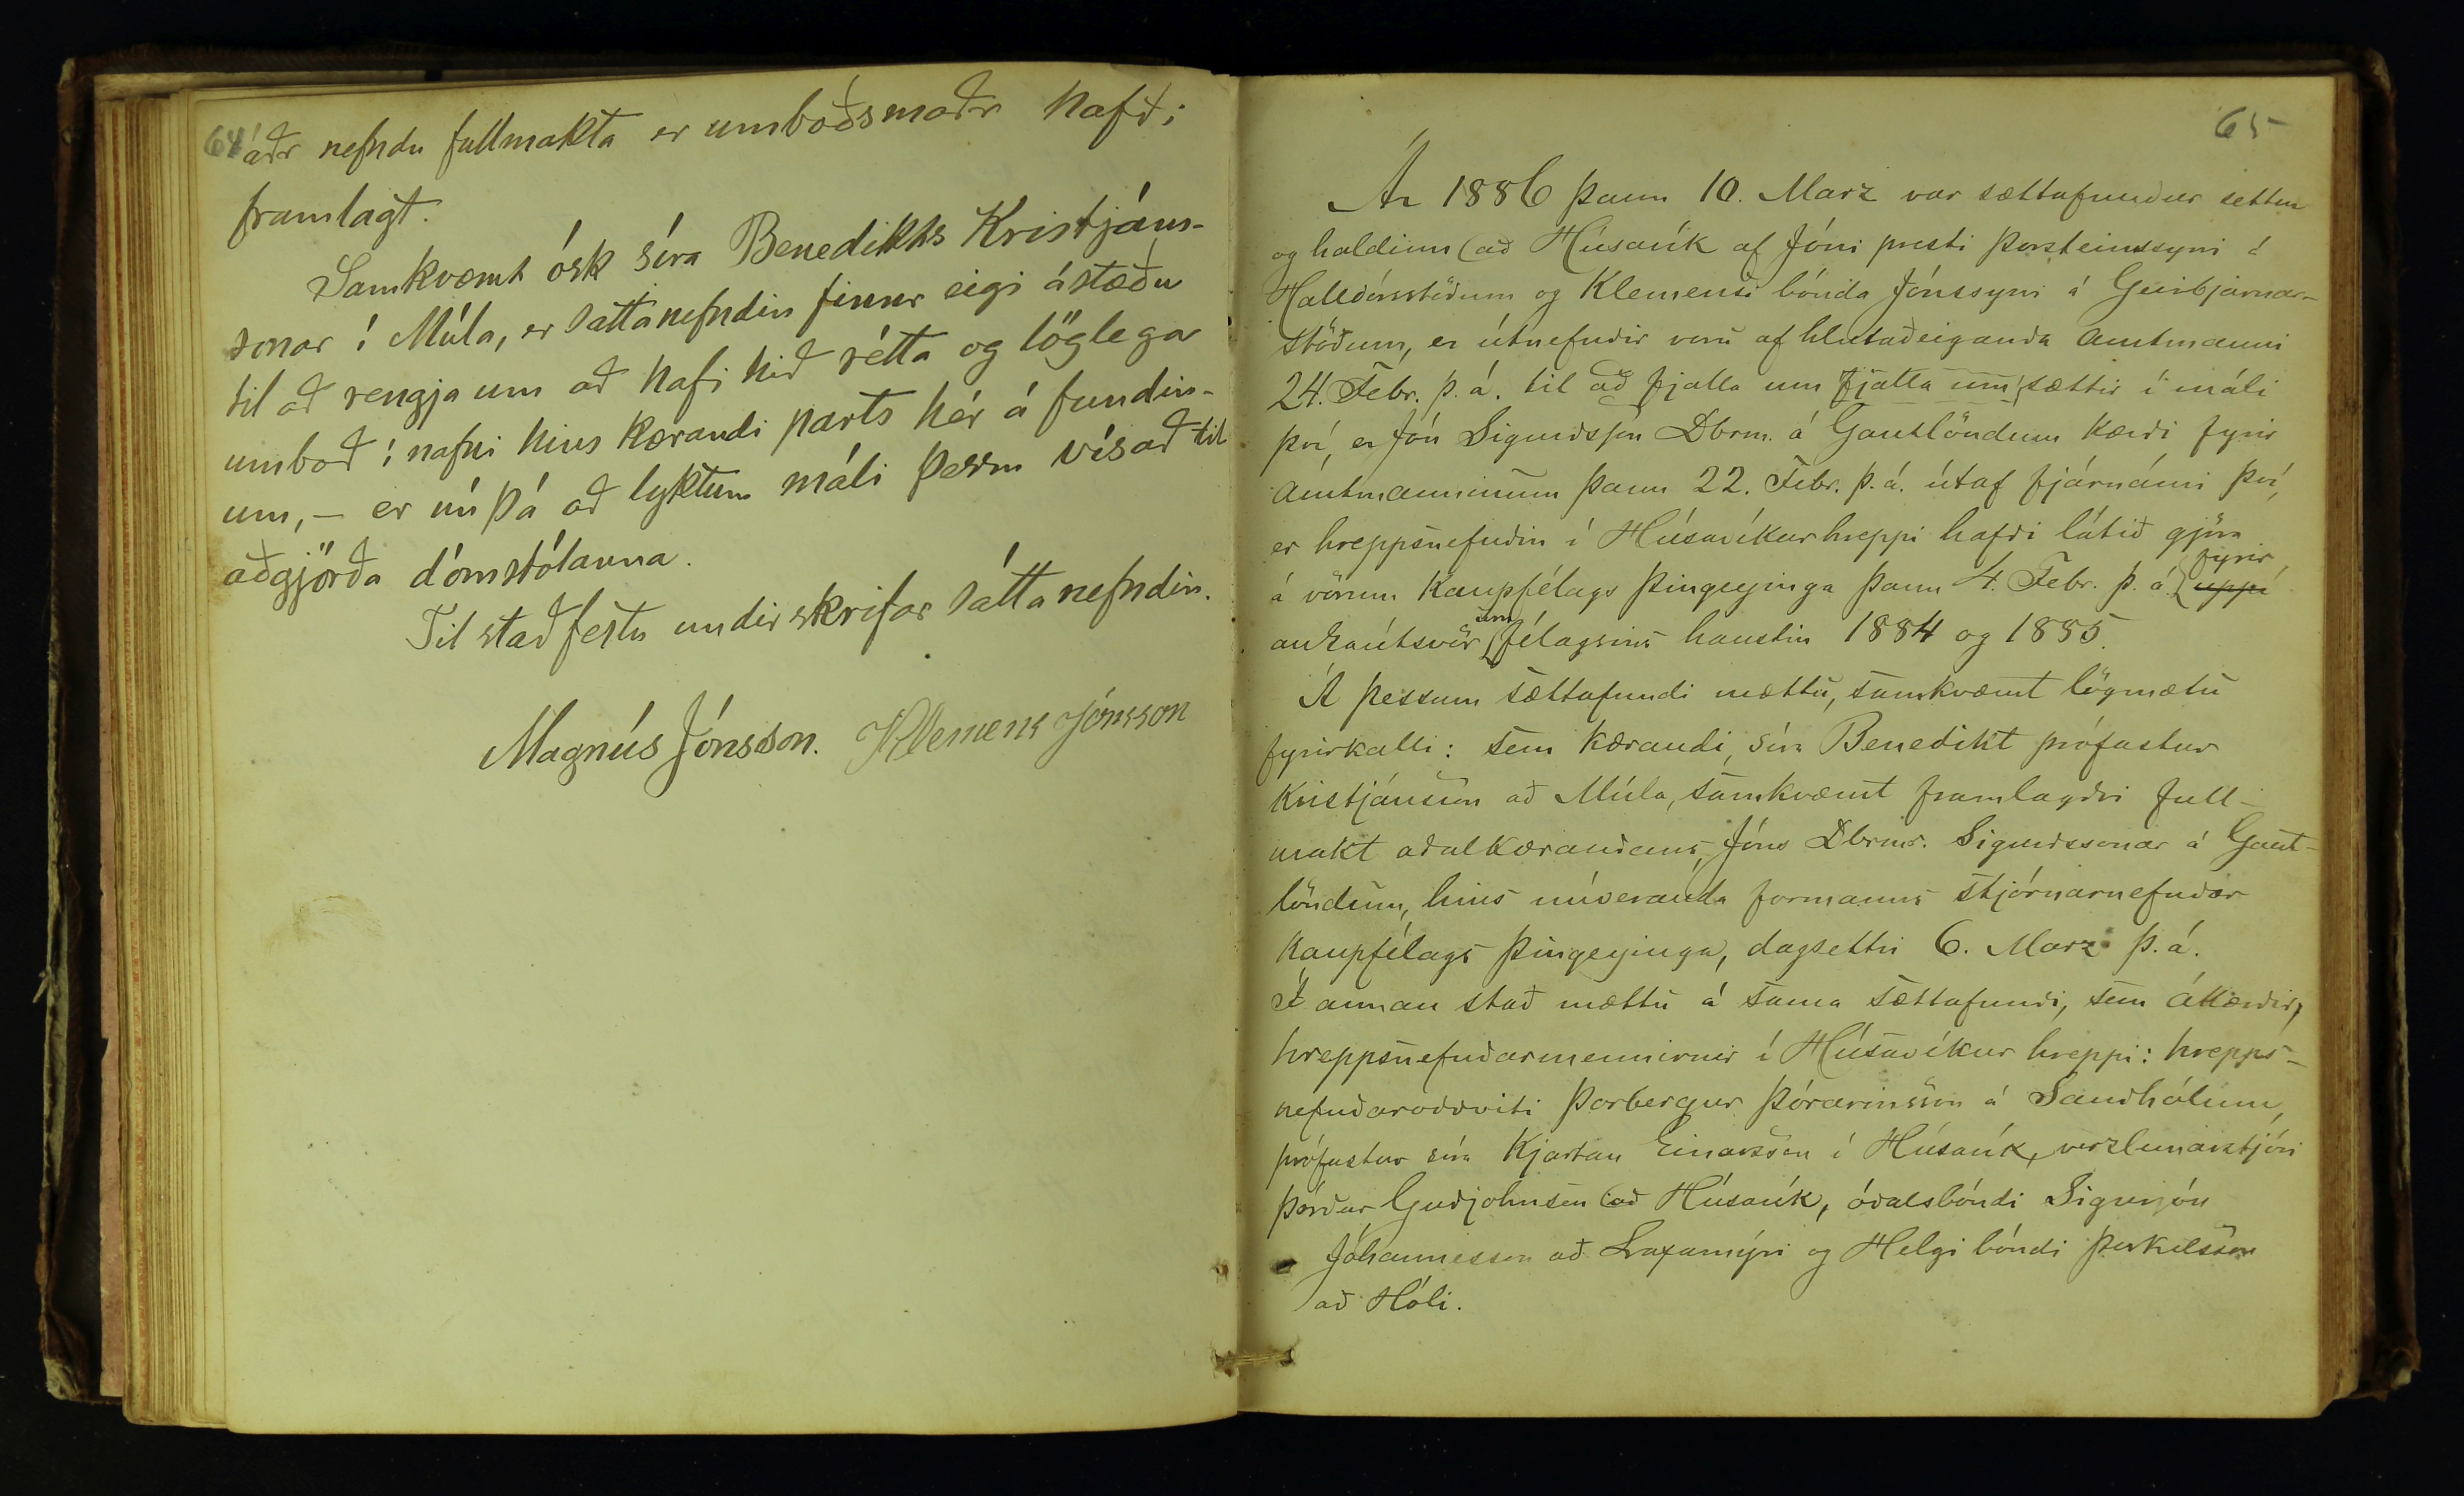 64
áðr nefndu fullmakta er umboðsmaðr hafði
framlagt.
Samkvæmt ósk síra Benedikts Kristjáns-
sonar í Múla, er sáttanefndin finnr eigi ástæðu
til að rengja um að hafi hið rétta og löglega
umboð í nafni hins kærandi parts hér á fundin-
um, – er nú þá að lyktum máli þessu vísað til
aðgjörða dómstólanna.
Til staðfestu undirskrifar sáttanefndin.
Magnús Jónsson. Klemens Jónsson
65
Ár 1886 þann 10. Marz var sættafundur settur
og haldinn að Húsavík af Jóni presti Þorsteinssyni á
Halldórsstöðum og Klemensi bónda Jónssyni á Geirbjarnar-
stöðum, er útnefndir voru af hlutaðeiganda amtmanni
24. Febr. þ. á. til að fjalla um fjalla um sættir í máli
því, er Jón Sigurdsson Dbrm. á Gautlöndum kærði fyrir
amtmanninum þann 22. Febr. þ. á. útaf fjárnámi því,
er hreppsnefndin í Húsavíkurhreppi hafði látið gjöra
á vörum Kaupfélags Þingeyinga þann 4. Febr. þ. á. fyrir uppí
aukaútsvör félagsins haustin 1884 og 1885.
Á þessum sættafundi mættu, samkvæmt lögmætu
fyrirkalli: sem kærandi, síra Benedikt prófastur
Kristjánsson að Múla, samkvæmt framlagðri full-
makt aðalkærandans, Jóns Dbrms. Sigurðssonar á Gaut-
löndum, hins núveranda formanns stjórnarnefndar
Kaupfélags Þingeyinga, dagsettri 6. Marz þ. á.
Í annan stað mættu á sama sættafundi, sem ákærðir,
hreppsnefndarmennirnir í Húsavíkur hreppi: hrepps-
nefndaroddviti Þorbergur Þórarinsson á Sandhólum,
prófastur síra Kjartan Einarsson í Húsavík, verzlunarstjóri
Þórður Guðjohnsen að Húsavík, óðalsbóndi Sigurjón
Jóhannesson að Laxamýri og Helgi bóndi Þorkelsson
að Hóli.